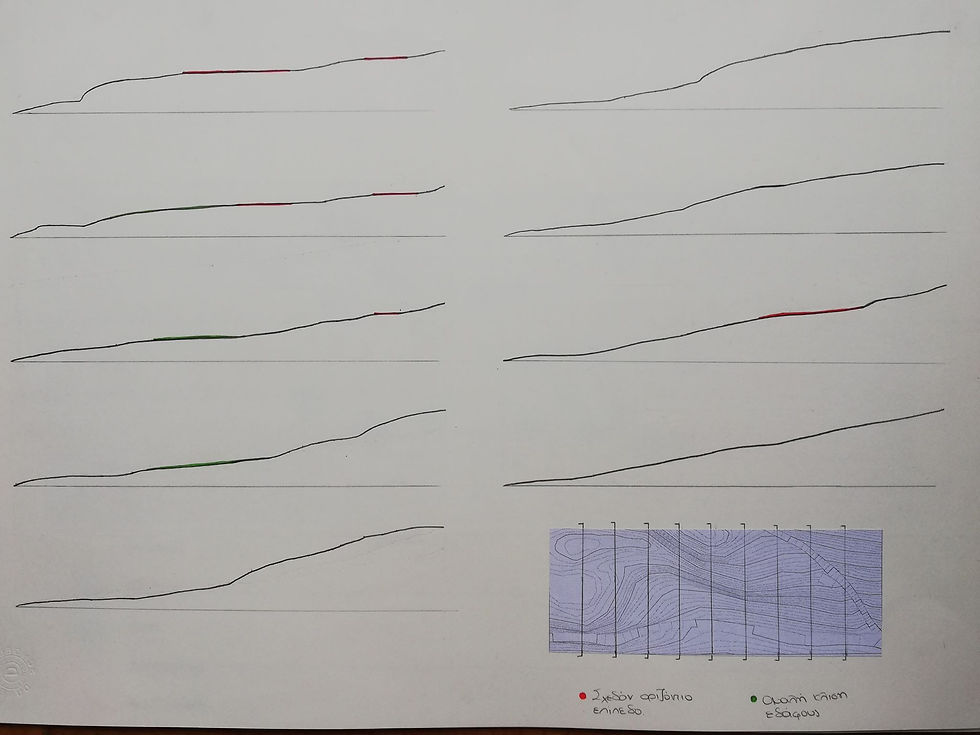 Σχεδόν οριζόντιο
επίπεδο.
Ομαλή κλίση
εδάφους